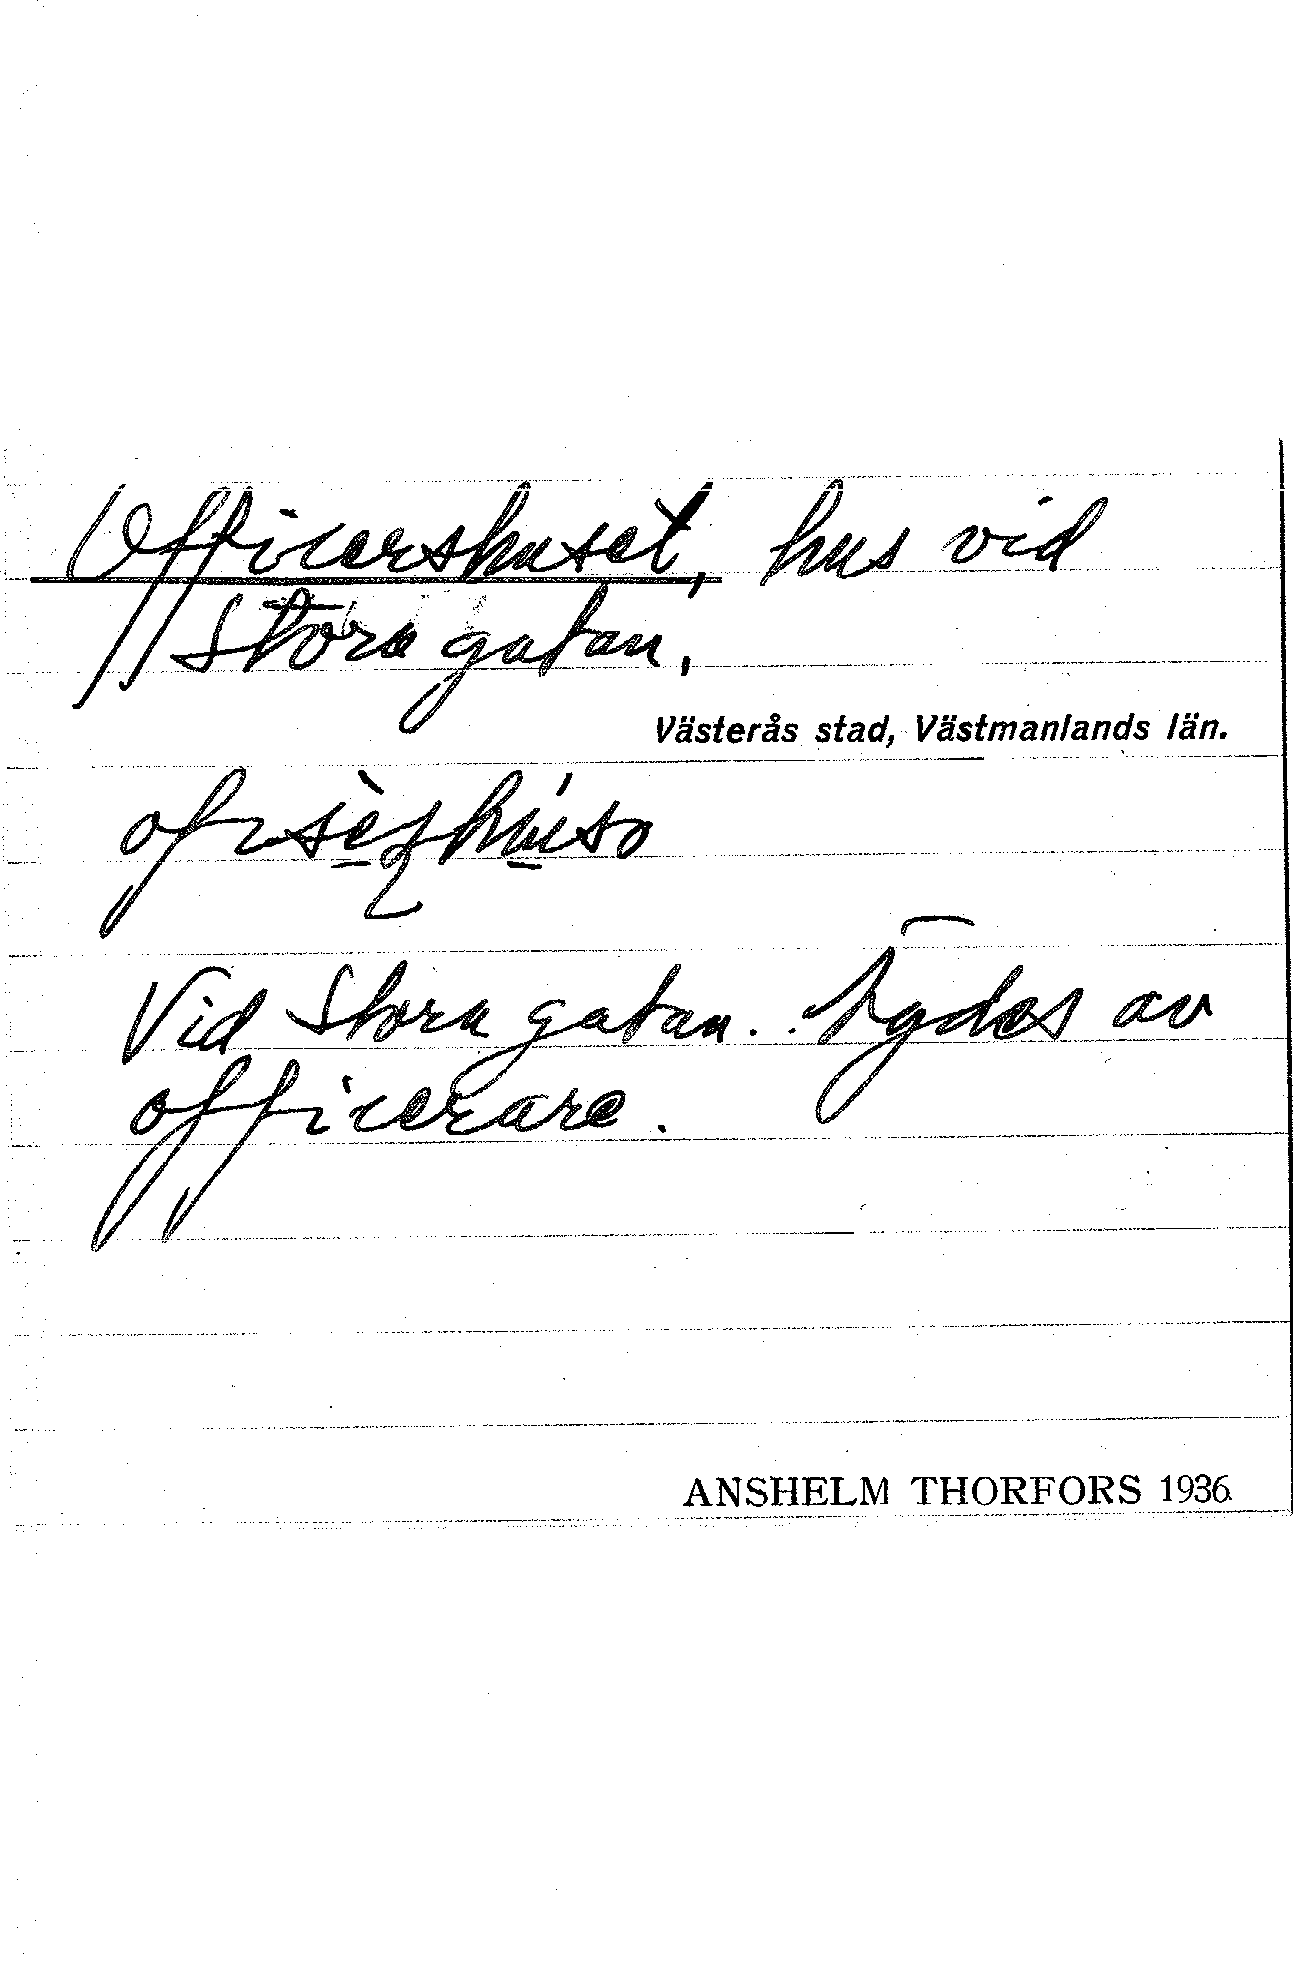 Officershuset, hus vid
Stora gatan,
Västerås stad, Västmanlands län.
Vid Stora gatan. Ägdes av
officerare.
ANSHELM THORFORS 1936.